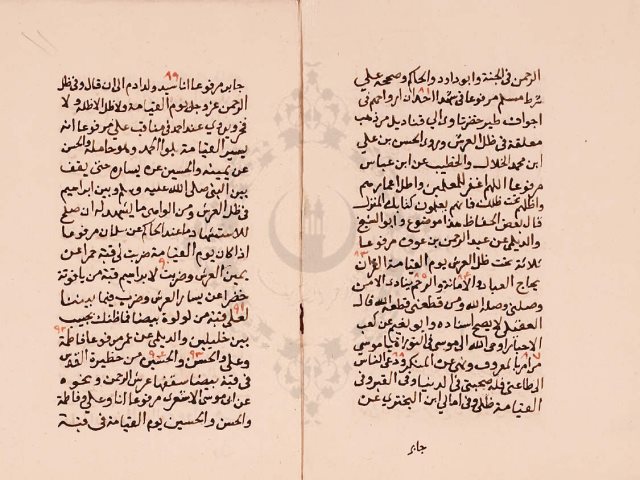 الرحمن في الجنة وابو داود والحاكم وصححه علي
شرط مسلم مرفوعا في شهداء احد ان ارواحهم في
اجواف طير خضر تاوي الي قناديل من ذهب
معلقة في ظل العرش وروي الحسن بن علي
ابن محمد الخلال والخطيب عن ابن عباس
مرفوعا اللهم اغفر للمعلمين واطل اعمارهم
واظلهم تحت ظلك فانهم يعلمون كتابك المنزل
قال بعض الحفاظ هذا موضوع وابو الشيخ
والديلمي عن عبد الرحمن بن عوف مرفوعا
ثلاثة تحت ظل العرش يوم القيامة القرآن
يحاج العباد والامانة والرحم ينادي الا من
وصلني وصله الله ومن قطعني قطعه الله قال
العقيلي لا يصح اسناده وابو نعيم عن كعب
الاحبار اوحي الله الي موسي في التوراة يا موسي
من امر بالمعروف ونهي عن المنكر ودعي الناس
الي طاعتي فله صحبتي في الدنيا وفي القبر وفي
القيامة ظلي وفي امالي ابن البختري عن
جابر
جابر مرفوعا انا سيد ولد ادم الي ان قال وفي ظل
الرحمن عز وجل يوم القيامة ولا ظل الا ظله ولا
فخر ويروي عند احمد في مناقب علي مرفوعا انه
يسير القيامة بلواء الحمد وهو حامله والحسن
عن يمينه والحسين عن يساره حتي يقف
بين النبي صلي الله عليه وسلم وبين ابراهيم
في ظل العرش ومن الواهي ما يشهد له ان صلح
للاستشهاد ما عند الحاكم عن سلمان مرفوعا
اذا كان يوم القيامة ضربت لي قبة حمرا عن
يمين العرش وضربت لابراهيم قبة من ياقوتة
خضرا عن يسار العرش وضرب فيما بيننا
لعلي قبة من لولوة بيضا فما ظنك بحبيب
بين خليلين والديلمي عن عمر مرفوعا فاطمة
وعلي والحسن والحسين من حظيرة القدس
في قبة بيضا سقفها عرش الرحمن ونحوه
عن ابي موسي الاشعري مرفوعا انا وعلي وفاطمة
والحسن والحسين يوم القيامة في قبة